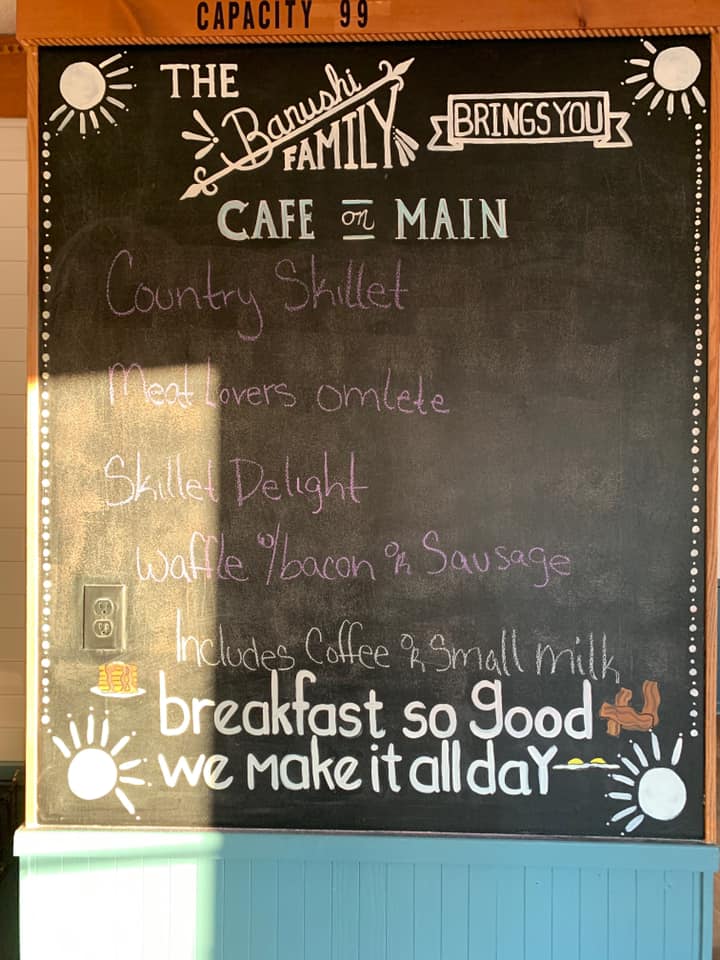 CAPACITY 99
THE Banushi FAMILY BRINGS YOU
CAFE on MAIN
Country Skillet
Meat Lovers omlete
Skillet Delight
Waffle w/bacon or Sausage
Includes Coffee or Small milk
breakfast so good
we make it all day